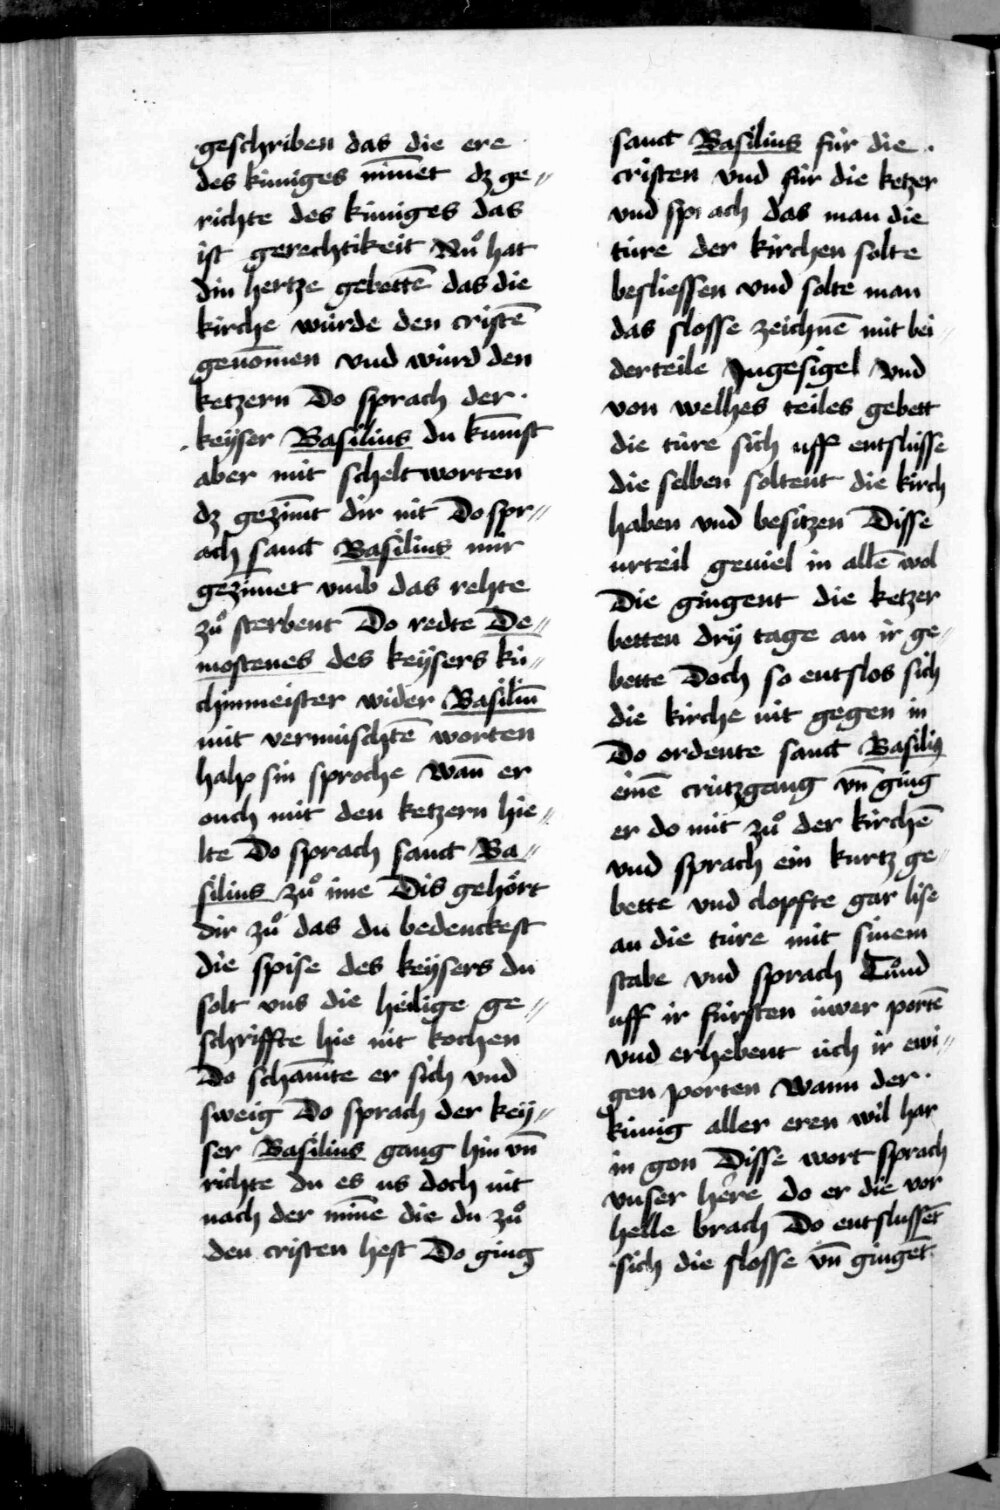 geschriben das die ere
des kúniges nim̄et dz ge⸗
richte des kúniges das
ist gerechtikeit Nuͦ hat
din hertze gebettē das die
kirche wúrde den cristē
genom̄en vnd wúrd den
ketzern Do sprach der
keyser Basilius du kum̄st
aber mit scheltworten
dz gezim̄t dir nit Do spr⸗
ach sanct Basilius mir
gezim̄et vmb das rehte
zuͦ sterbent Do redte De⸗
mostenes des keysers kú⸗
chinmeister wider Basiliū
mit vermúschtē worten
halp sin sproche Wan̄ er
ouch mit den ketzern hie⸗
lte Do sprach sanct Ba⸗
silius zuͦ ime Dis gehört
dir zuͦ das du bedenckest
die spise des keysers du
solt vns die heilige ge⸗
schriffte hie nit kochen
Do scham̄te er sich vnd
sweig Do sprach der key⸗
ser Basilius gang hin vn̄
richte du es us doch nit
nach der min̄e die du zuͦ
den cristen hest Do ging
sanct Basilius fúr die
cristen vnd fúr die ketzer
vnd sprach das man die
túre der kirchen solte
besliessen vnd solte man
das slosse zeichnē mit bei
derteile Jngesigel vnd
von welhes teiles gebett
die túre sich uff entslússe
die selben soltent die kirch
haben vnd besitzen Disse
urteil geuiel in allē wol
Die gingent die ketzer
betten dry tage an ir ge⸗
bette Doch so entslos sich
die kirche nit gegen in
Do ordente sanct Basiliꝰ
einē crútzgang vn̄ ging
er do mit zuͦ der kirchē
vnd sprach ein kurtz ge⸗
bette vnd clopfte gar lise
an die túre mit sinem
stabe vnd sprach Tuͦnd
uff ir fúrsten úwer portē
vnd erhebent úch ir ewi⸗
gen porten Wann der
kúnig aller eren wil har
in gon Disse wort sprach
vnser here do er die vor
helle brach Do entslussēt
sich die slosse vn̄ gingēt